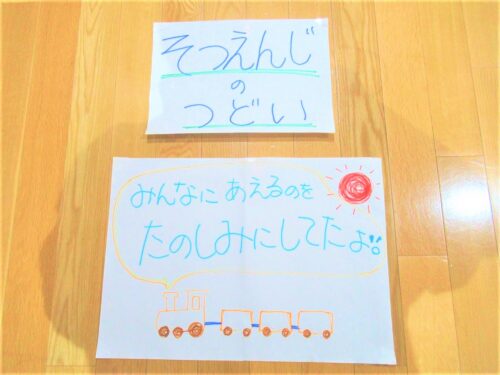 そつえんじ
の
つどい
みんなに あえるのを
たのしみにしてたよ!!